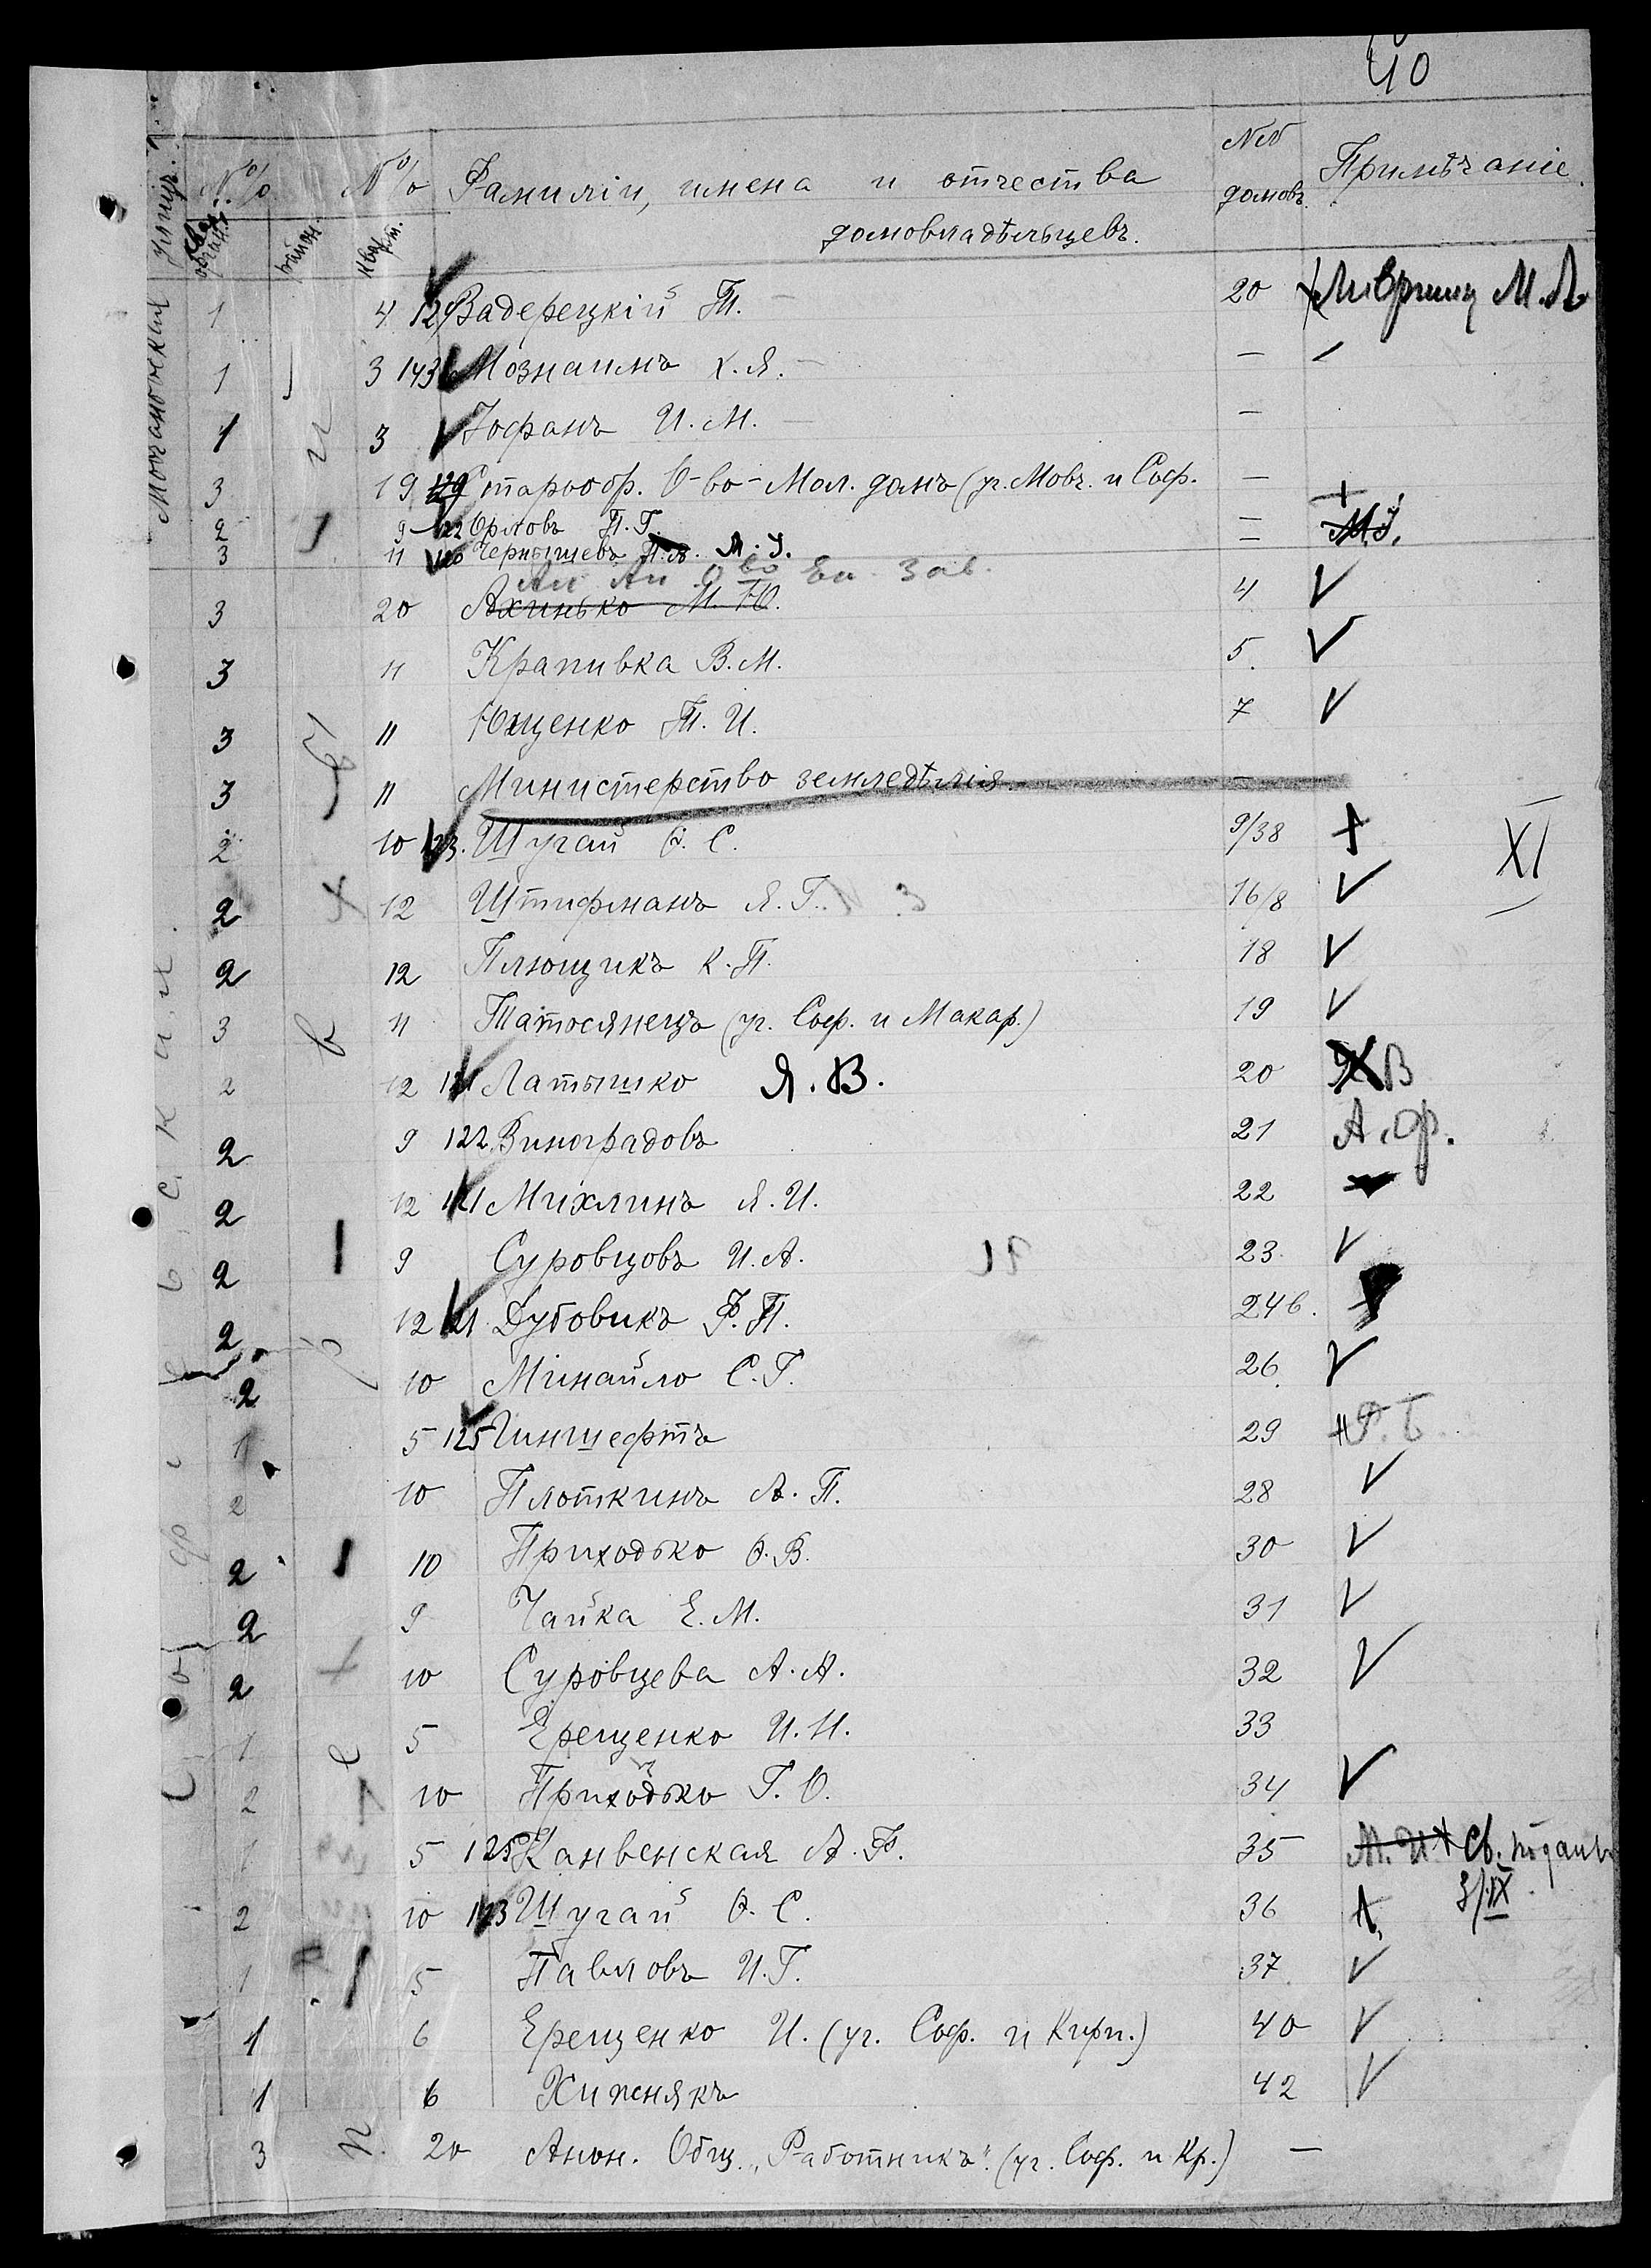 40
улицы. № № Фамиліи, имена и отчества №№ Примѣчаніе.
район. кварт. домовладѣльцевъ. домовъ
Мовчановская
1 4 129 Задерецкій П. 20 М. Л.
1 3 143 Мознаимъ Х. Я. —
1 3 Зофанъ И. М. —
3 19 Старообр. О-во-Мол. домъ (уг. Мовч. и Соф. — +
2 9 122 Орловъ П. Г. — М.У.
3 11 120 Чернышевъ П. А. Я. У. —
Ан Ан О во Ел. Зав.
3 20 Ахинько М. Ю. 4 V
3 11 Крапивка В. М. 5. V
3 11 Ющенко П. И. 7 V
3 11 Министерство земледѣлія. —
2 10 123. Шугай Ѳ. С. 9/38 + XI
2 12 Штифманъ Я. Г. 16/8 V
2 12 Плющикъ К. П. 18 V
3 11 Татосянецъ (уг. Соф. и Макар.) 19 V
2 12 121 Латышко Я. В. 20 В
2 9 122. Виноградовъ 21 А. Ф.
2 12 121 Михлинъ Я. И. 22
2 9 Суровцовъ И. А. 23. V
2 12 121 Дубовикъ Ф. П. 24 б.
2 10 Минайло С. Г. 26. V
1 5 125 Гиншефтъ 29 Б.
2 10 Плоткинъ А. П. 28 V
2 10 Приходько Ѳ. В. 30 V
2 9 Чайка Е. М. 31 V
2 10 Суровцева А. А. 32 V
1 5 Ерещенко И. Н. 33
2 10 Приходько Г. О. 34 V
1 5 125 Канвенская А. Ф. 35 М. И. + Св.
3/IX
2 10 123 Шугай Ѳ. С. 36
1 5 Павловъ И. Г. 37 V
1 6 Ерещенко И. (уг. Соф. и Кирп.) 40 V
1 6 Хижнякъ 42 V
3 20 Анон. Общ. „Работникъ". (уг. Соф. и Кр.) —